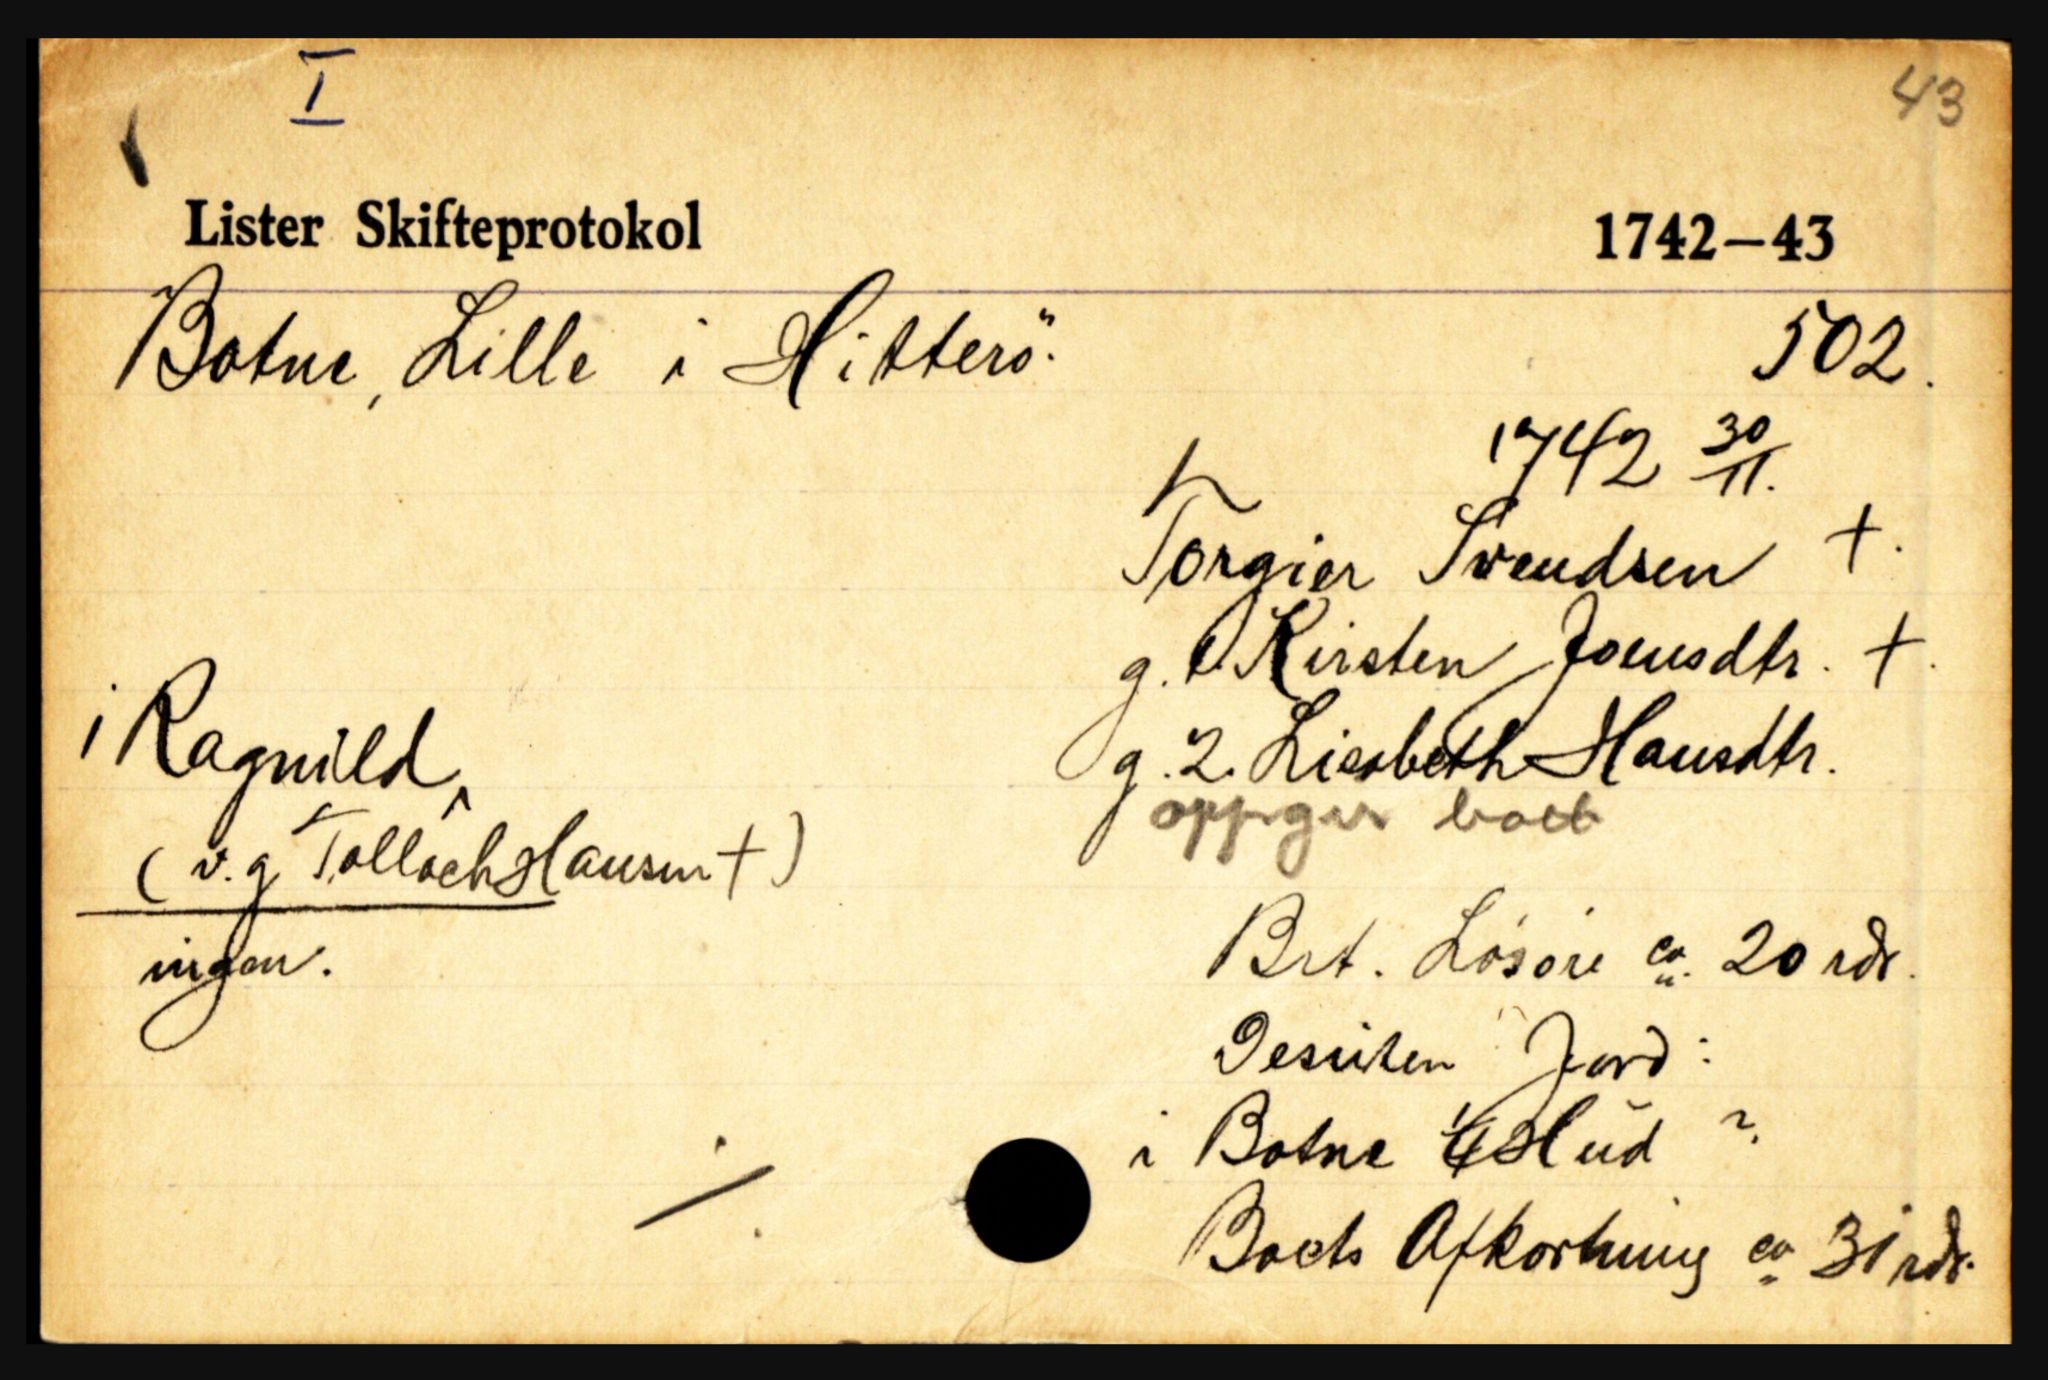 I
43
Lister Skifteprotokol 1742–43
Botne, Lille i Hitterö. 502.
1742 30/11.
Torgier Svendsen +.
g. 1. Kirsten Joensdtr. +.
g. 2. Lisabeth Hansdtr.
oppgir boet
1 Ragnild,
(v. g. Tollach Hansen +)
ingen.
Brt. Løsøre ca. 20 rdr.
Desuten Jord:
i Botne Hud
Boets Afkortning ca 31 rdr.